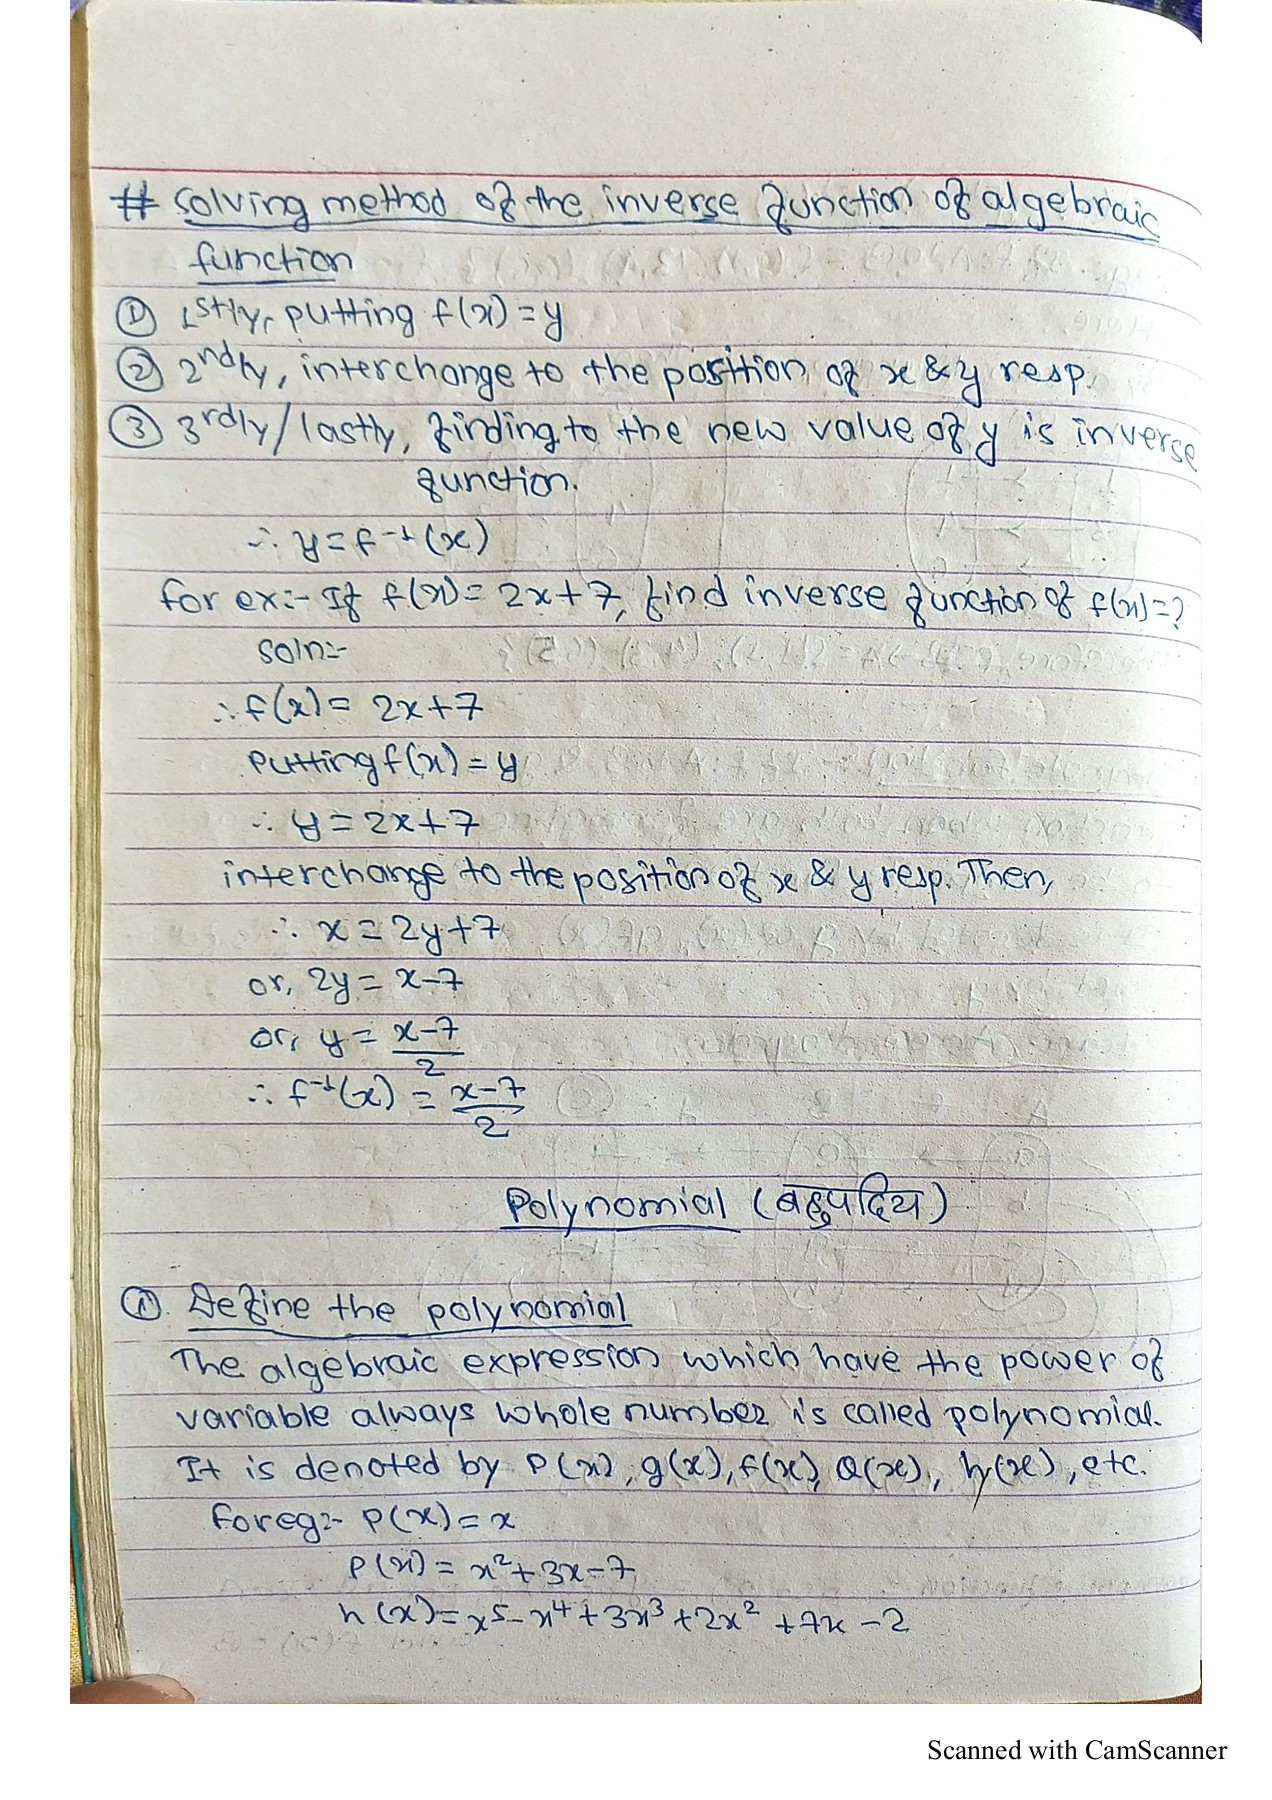 # Solving method of the inverse function of algebraic
function
① 1stly, putting f(x) = y
② 2ndly, interchange to the position of x & y resp.
③ 3rdly/lastly, finding to the new value of y is inverse
function.
∴ y = f⁻¹(x)
for ex:- If f(x) = 2x+7, find inverse function of f(x)=?
Soln:-
∴ f(x) = 2x+7
Putting f(x) = y
∴ y = 2x+7
interchange to the position of x & y resp. Then,
∴ x = 2y+7
or, 2y = x-7
or, y = x-7/2
∴ f⁻¹(x) = x-7/2
Polynomial (बहुपदिय)
① Define the polynomial
The algebraic expression which have the power of
variable always whole number is called polynomial.
It is denoted by P(x), g(x), f(x), Q(x), h(x), etc.
for eg:- P(x) = x
P(x) = x²+3x-7
h(x) = x⁵-x⁴+3x³+2x²+7x-2
Scanned with CamScanner